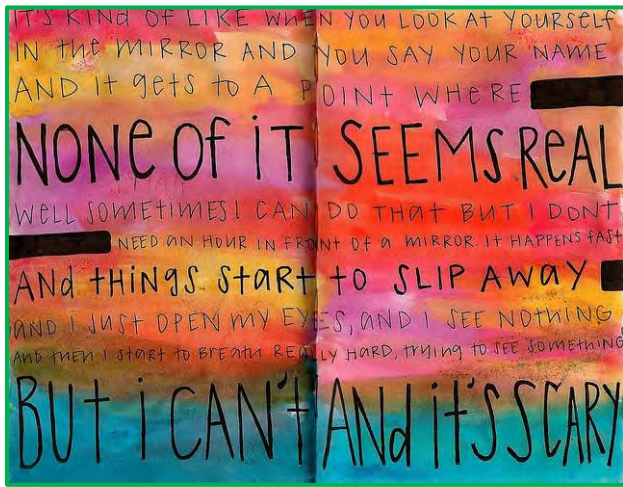 IT'S KIND OF LIKE WHEN YOU LOOK AT YOURSELF
IN tHe MIRROR AND YOU SAY YOUR NAME
AND It gets to A POINt WHERE
NONE OF iT SEEMS REAL
WELL SOMEtIMES I CAN DO tHAt BUt I DONt
NEED AN HOUR IN FRONt OF a MIRROR. It HAPPENS FAST
ANd tHINGS StaRt tO SLIP AWAY
AND I JUSt OPEN MY EYES, AND I SEE NOtHING
AND tHEN I StaRt to BREATH REALLY HARD, tRYING to SEE SOMEtHING
BUt i CAN't ANd it'S SCARY